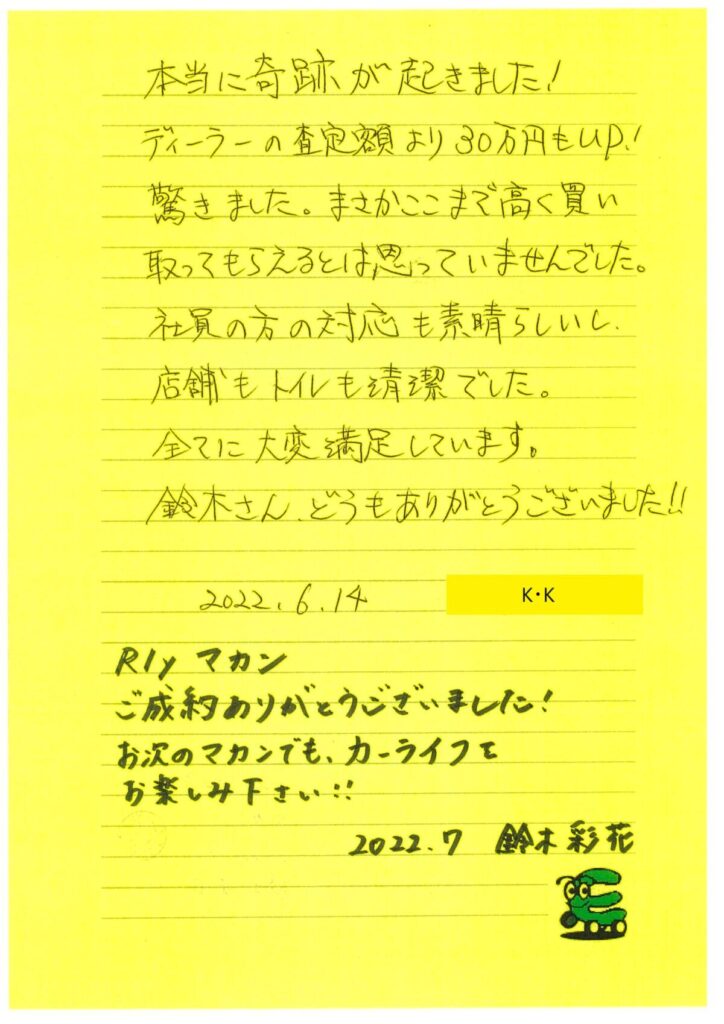 本当に奇跡が起きました!
ディーラーの査定額より30万円もUP!
驚きました。まさかここまで高く買い
取ってもらえるとは思っていませんでした。
社員の方の対応も素晴らしいし、
店舗もトイレも清潔でした。
全てに大変満足しています。
鈴木さん、どうもありがとうございました!!
2022.6.14
K・K
R1y マカン
ご成約ありがとうございました!
お次のマカンでも、カーライフを
お楽しみ下さい!!
2022.7 鈴木彩花